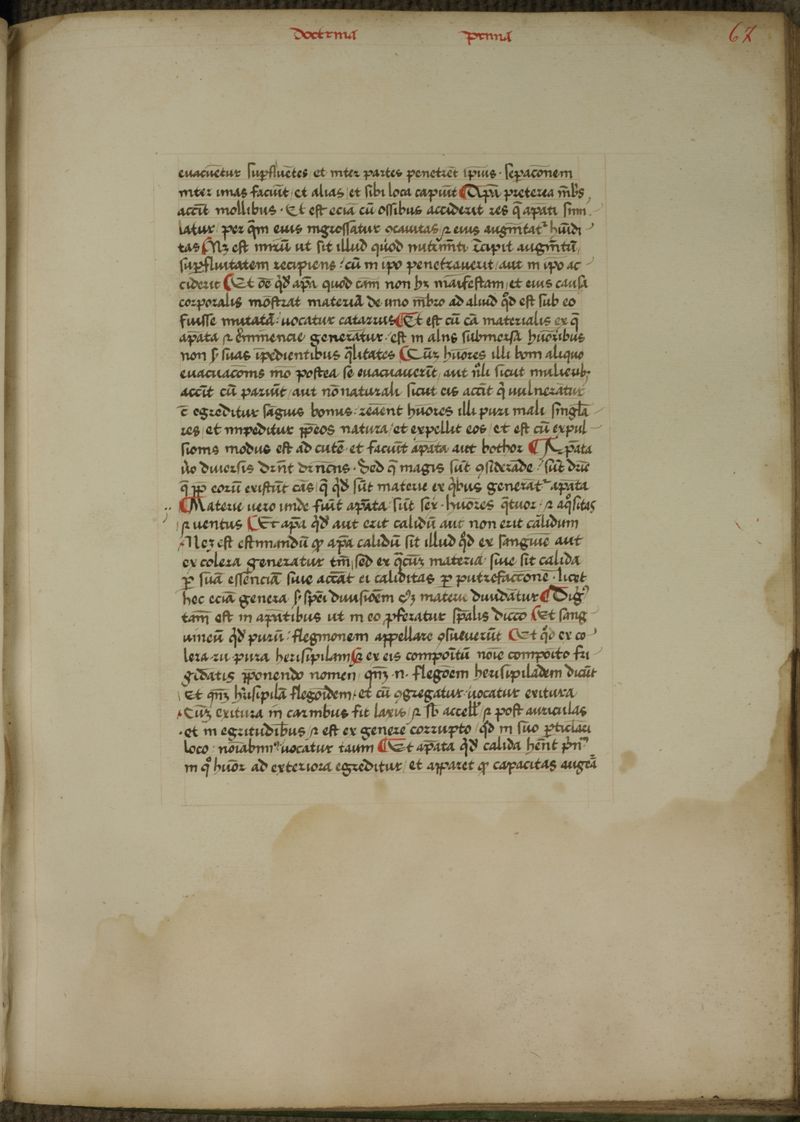 Doctrina prima 67
euacuētur supfluētes et inter partes penetrēt ipius · sepaconem
inter unas faciūt et alias et sibi loca capiūt Apā preterea mb̄s
accīt mollibus · Et est eciā cū ossibus acciderit res q̄ apati simi
latur per qm̄ eius ingrossatur ꝯcauitas ⁊ eius augm̄tat̉ hūidi
tas Nō est mirū ut sit illud quod nutrim̄ti recipit augm̄tū
supfluitatem recipiens : cū in ipo penetrauerit aut in ipo ac
ciderit Et oē qd̄ apā quod cām non hȝ manifestam et eius causa
corporalis mōstrat materiā de uno mb̄ro ad aliud qd̄ est sub eo
fuisse mutatā uocatur catarrus Et est cū cā materialis ex q̄
apāta ⁊ eminencie generatur est in aliis submersa hūoribus
non ſ suas īpedientibus q̄litates Cūȝ hūores illi boni aliquo
euacuacoīs mō postea se euacuauerīt aut nīli sicut mulierib;
accīt cū pariūt aut nō naturali sicut eis accīt q̄ uulnerātur
⁊ egreditur sāguis bonus : remanent hūores illi puri mali singl̄a
res et impeditur ꝓpt eos natura et expellit eos et est cū expul
sionis modus est ad cutē et faciūt apāta aut bothor Apāta
ūo diuersis dr̄nt dr̄ncīis · Sed q̄ magis sūt ꝯsiderāde sūt drīe
q̄ ꝓpt eorū existūt cās q̄ qd̄ sūt materie ex qb̄us generāt̉ apāta
Materie uero unde fiūt apāta sūt sex · hūores q̄tuor · ⁊ aq̄sitas
⁊ uentus Et apā qd̄ aut erit calidū aut non erit calidum
Nec est estimandū ꝙ apā calidū sit illud qd̄ ex sanguine aut
ex colera generatur tm̄ sed ex q̄cūȝ materia siue sit calida
ꝑ suā essēnciā siue accāt ei caliditas ꝑ putrefactionē · licet
hec eciā genera ſ spēi diuisiōem cȝ materie diuidātur Dig̉
tam est in apātibus ut in eo ꝓferatur spālis dicco Et sang
uineū qd̄ purū flegmonem appellare ꝯsueuerūt Et qd̄ ex co
lera rū pura herisipilam ⁊ ex eis compoitū noīe compoito fri
giditatis p̄ponendo nomen qm̄ȝ · n · flegōem herisipiladem dicūt
Et qm̄ȝ hīsipilā flegoidem et cū ꝯgregatur uocatur exitura
Cūȝ exitura in carnibus fit laxis ⁊ sb̄ accell̉ ⁊ post auriculas
et in egritudibus ⁊ est ex genere corrupto qd̄ in suo ꝑticlari
loco noīabim̉ uocatur taum Et apāta qd̄ calida hēnt pn̄ᵐ
in q̄ hūor ad exteriora egreditur et apparet ꝙ capacitas augeā